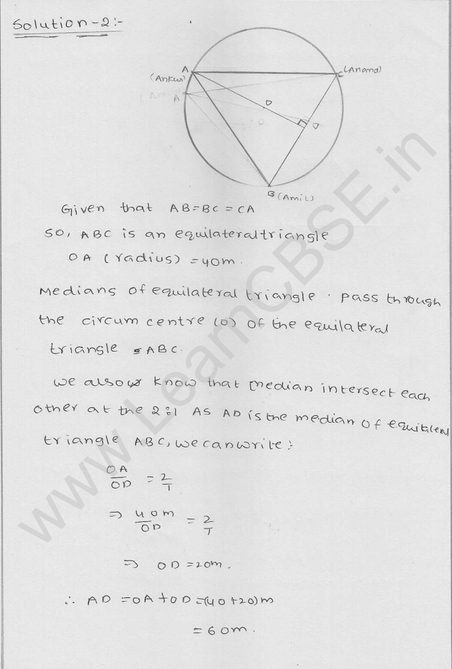 Solution-2:-
A
(Ankur)
C(Anand)
A
O
D
B (Amit)
Given that AB=BC=CA
SO, ABC is an equilateral triangle
OA (radius) = 40m.
Medians of equilateral triangle . pass through
the circum centre (O) of the equilateral
triangle ABC.
We also know that median intersect each
other at the 2:1 AS AD is the median of equilateral
triangle ABC, we can write :-
OA/OD = 2/1
⇒ 40m/OD = 2/1
⇒ OD = 20m.
∴ AD = OA + OD = (40+20)m
= 60m.
www.LearnCBSE.in